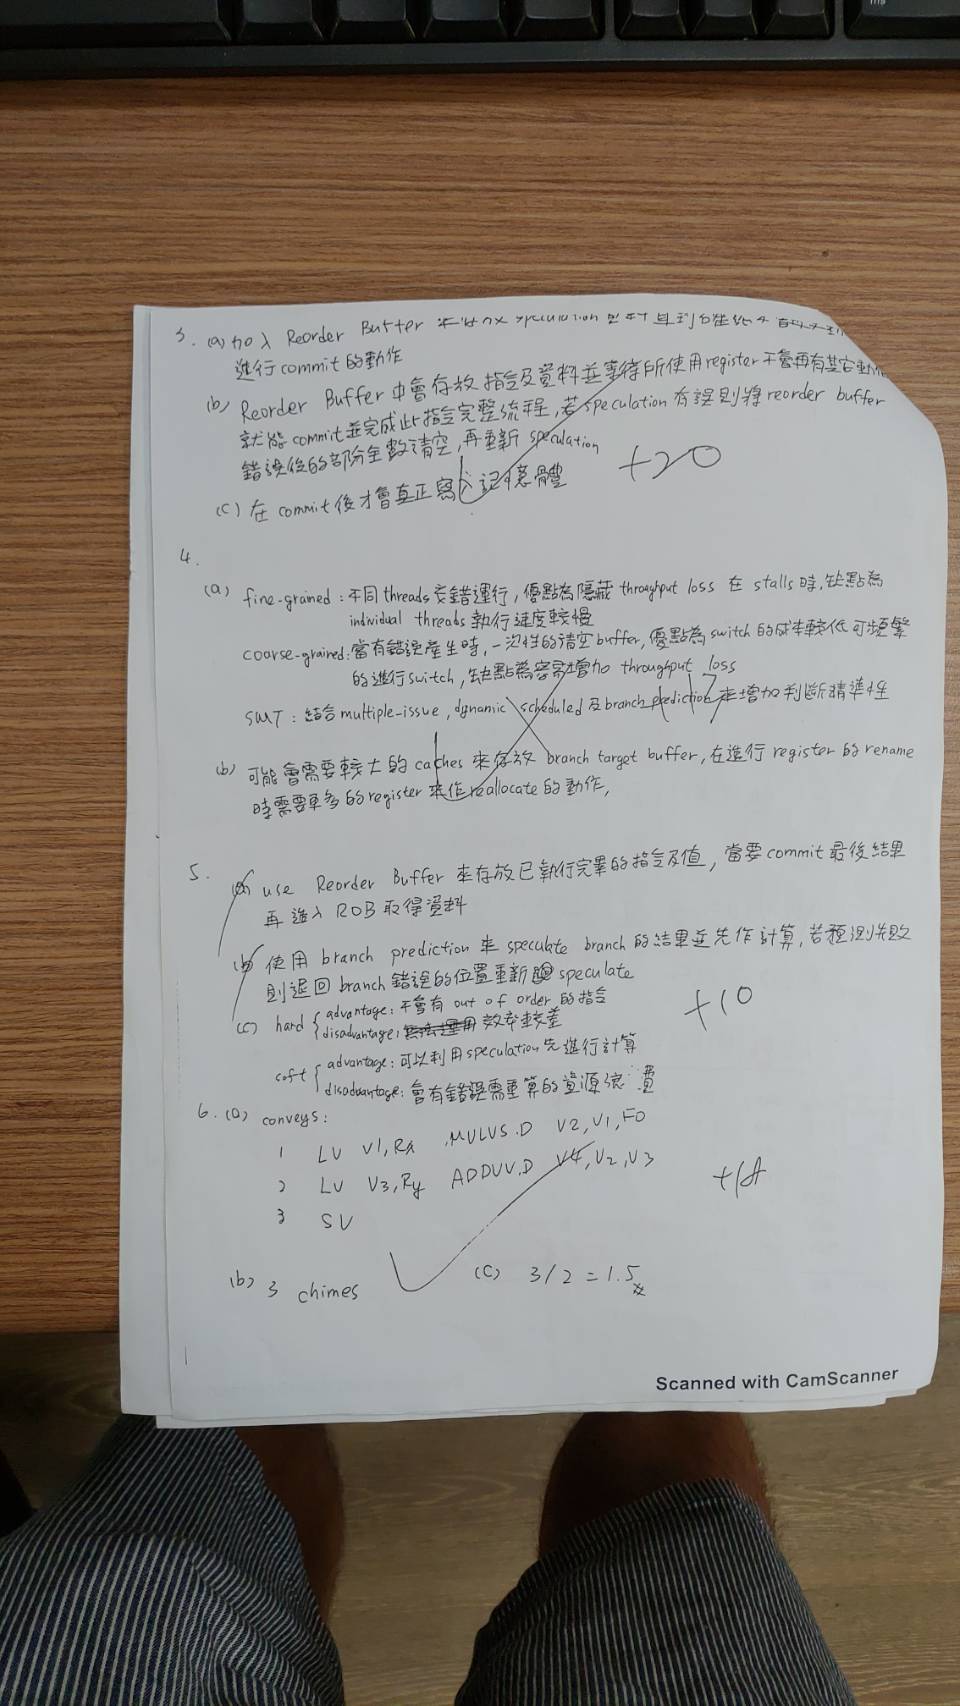 3. (a) 加入 Reorder Buffer speculation 直到
進行commit的動作
(b) Reorder Buffer 中會存放指令及資料並等待所使用register不會再有其它
就能commit並完成此指令完整流程,若speculation有誤則將reorder buffer
錯誤後的部份全數清空,再重新 speculation
+20
(c) 在 commit 後才會真正寫入記憶體
4.
(a) fine-grained : 不同threads交錯運行, 優點為隱藏 throughput loss 在 stalls 時, 缺點為
individual threads 執行速度較慢
coarse-grained: 當有錯誤產生時, 一次性的清空buffer, 優點為switch的成本較低可頻繁
的進行switch, 缺點為容易增加 throughput loss
SMT : 結合multiple-issue, dynamic scheduled 及branch prediction 來增加判斷精準性
(b) 可能會需要較大的 caches 來存放 branch target buffer, 在進行 register 的 rename
時需要更多的register 來作reallocate的動作,
5. (a) use Reorder Buffer 來存放已執行完畢的指令及值, 當要commit最後結果
再進入 ROB 取得資料
(b) 使用 branch prediction 來 speculate branch 的結果並先作計算, 若預測失敗
則退回 branch 錯誤的位置重新 speculate
+10
(c) hard { advantage: 不會有 out of order 的指令
disadvantage: 效率較差
soft { advantage: 可以利用speculation先進行計算
disadvantage: 會有錯誤需重算的資源浪費
6. (a) conveys:
1 LV V1,Rx ,MULVS.D V2,V1,F0
2 LV V3,Ry ADDVV.D V4,V2,V3
3 SV
(b) 3 chimes (c) 3/2 = 1.5
Scanned with CamScanner